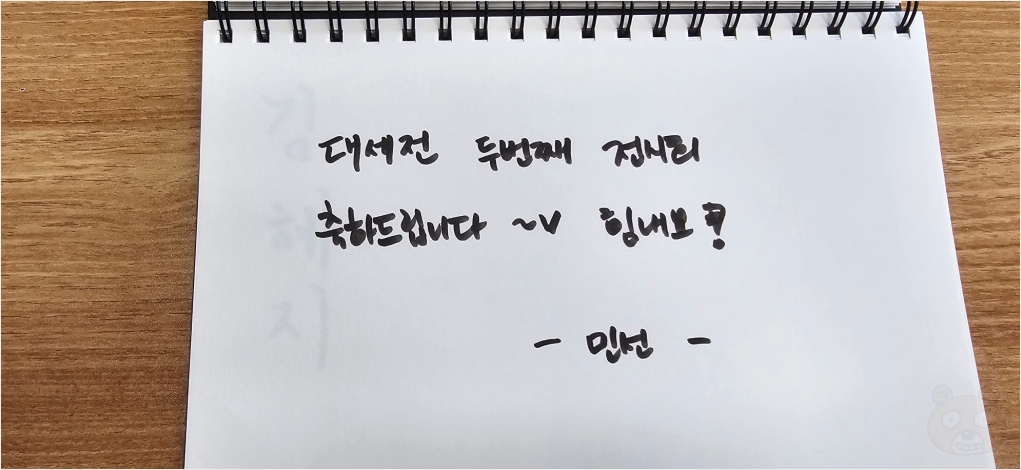 대세전 두번째 전시회
축하드립니다 ~v 힘내보?
- 민선 -